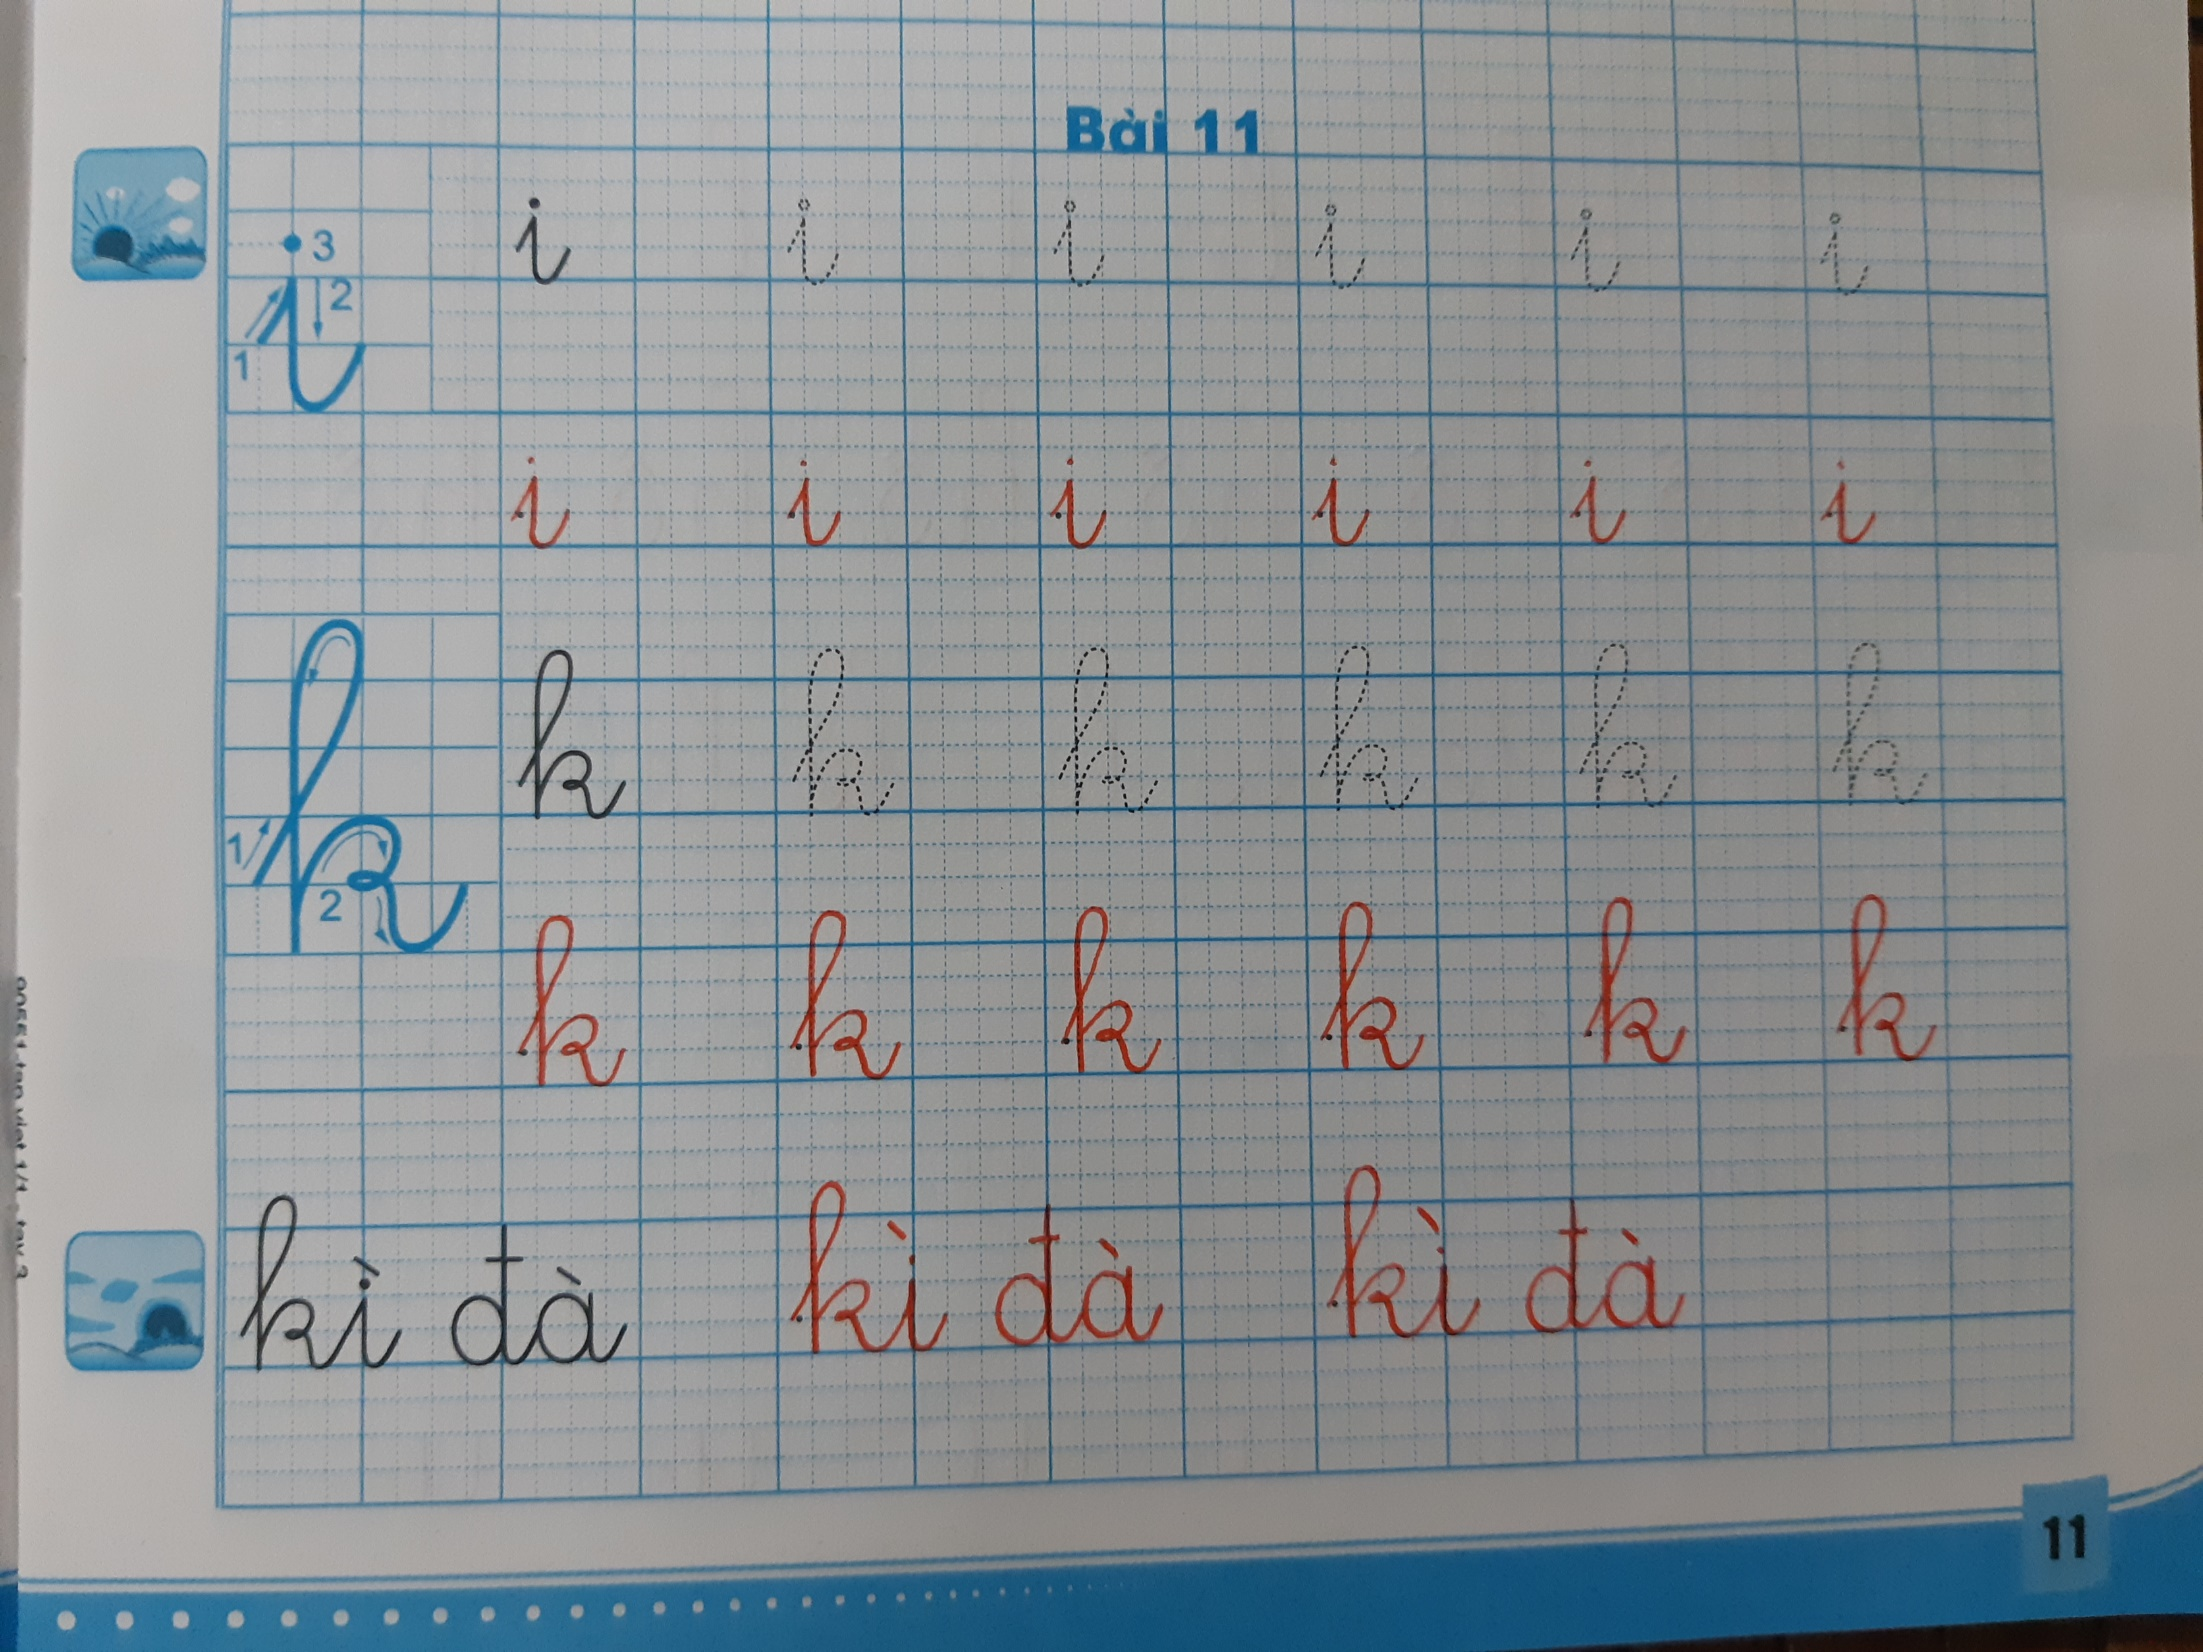 Bài 11
3 i i i i i i
2
1
i i i i i i
k k k k k k
1
2
k k k k k k
kì đà kì đà kì đà
11